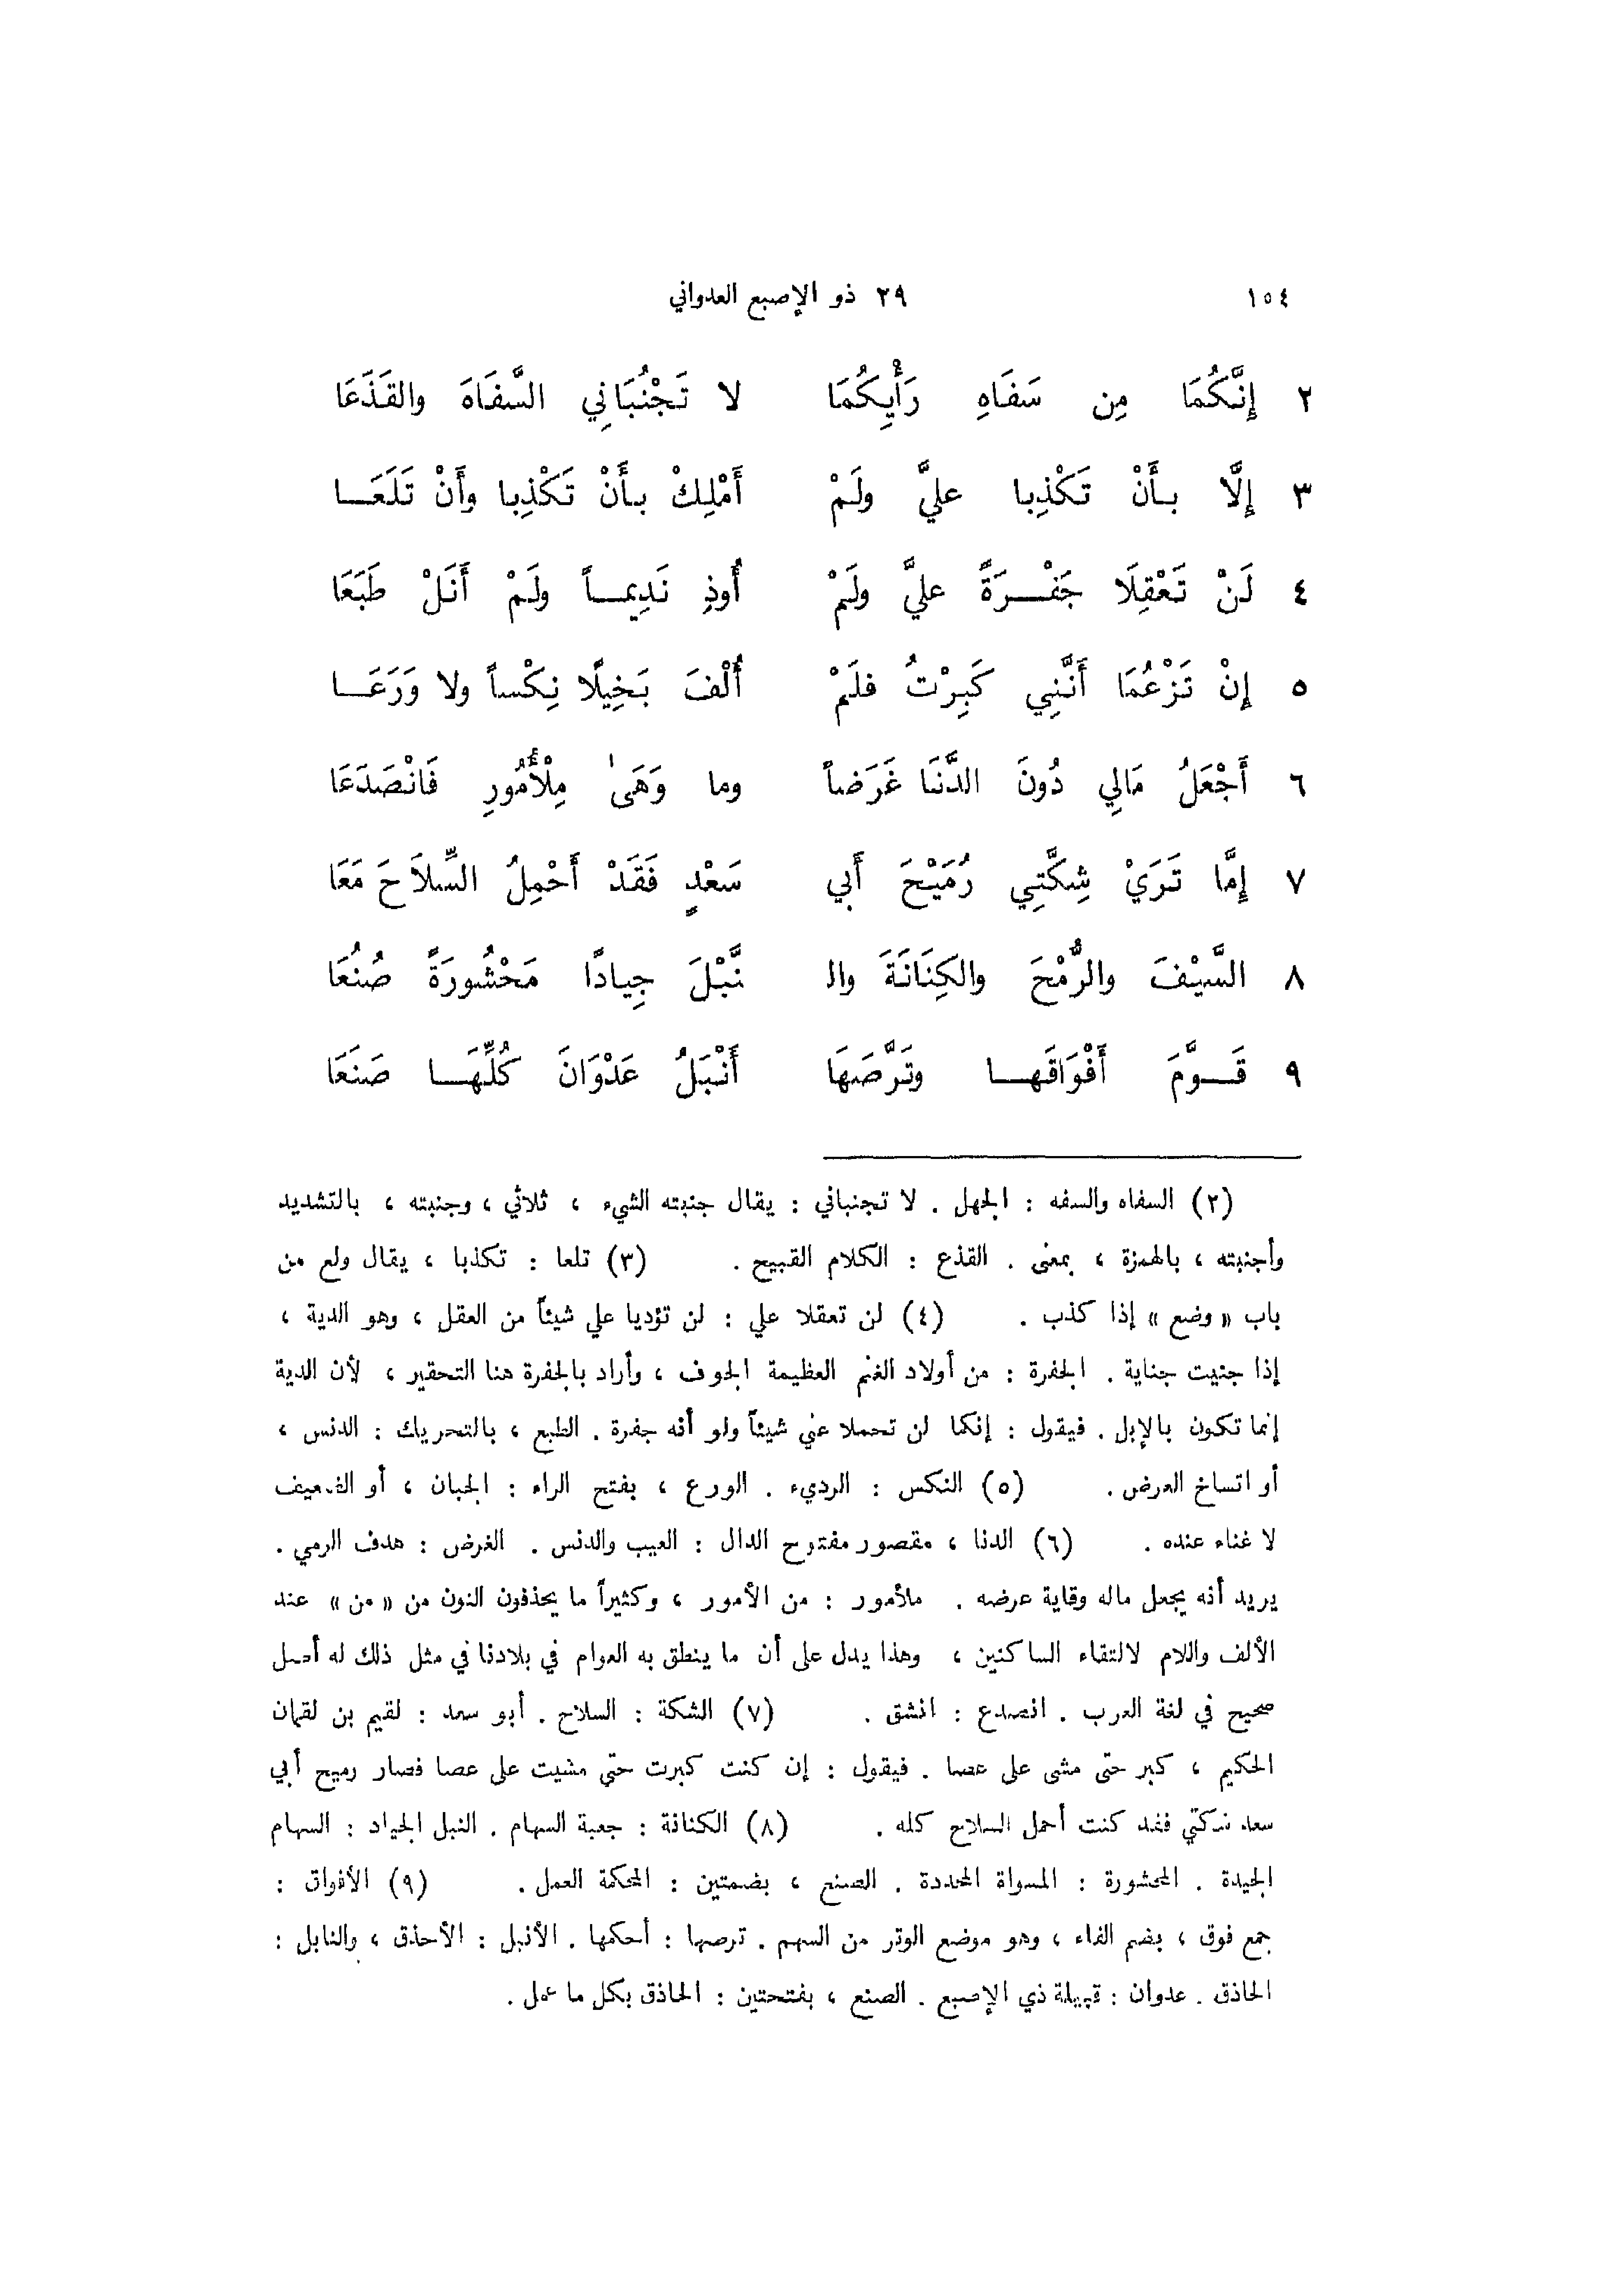 ١٥٤ ٢٩ ذو الإصبع العدواني
٢ إِنَّكُمَا مِن سَفَاهِ رَأْيِكُمَا لا تَجْنُبَانِي السَّفَاهَ والقَذَعَا
٣ إِلَّا بِأَنْ تَكْذِبا عليَّ ولَمْ أَمْلِكْ بِأَنْ تَكْذِبا وأَنْ تَلَعَا
٤ لَنْ تَعْقِلَا جَفْرَةً عليَّ ولَمْ أُوذِ نَدِيماً ولَمْ أَنَلْ طَبَعَا
٥ إِنْ تَزْعُمَا أَنَّنِي كَبِرْتُ فلَمْ أُلْفَ بَخِيلًا نِكْساً ولا وَرَعَا
٦ أَجْعَلُ مَالِي دُونَ الدَّنَا غَرَضاً وما وَهَىٰ مِلْأُمُورِ فَانْصَدَعَا
٧ إِمَّا تَرَيْ شِكَّتِي رُمَيْحَ أَبي سَعْدٍ فَقَدْ أَحْمِلُ السِّلاَحَ مَعَا
٨ السَّيْفَ والرُّمْحَ والكِنَانَةَ وال نَّبْلَ جِيادًا مَحْشُورَةً صُنُعَا
٩ قَوَّمَ أَفْوَاقَها وتَرَّصَهَا أَنْبَلُ عَدْوَانَ كُلِّهَا صَنَعَا
(٢) السفاه والسفه : الجهل . لا تجنباني : يقال جنبته الشيء ، ثلاثي ، وجنبته ، بالتشديد
وأجنبته ، بالهمزة ، بمعنى . القذع : الكلام القبيح . (٣) تلعا : تكذبا ، يقال ولع من
باب « وضع » إذا كذب . (٤) لن تعقلا علي : لن تؤديا علي شيئاً من العقل ، وهو الدية ،
إذا جنيت جناية . الجفرة : من أولاد الغنم العظيمة الجوف ، وأراد بالجفرة هنا التحقير ، لأن الدية
إنما تكون بالإبل . فيقول : إنكما لن تحملا عني شيئاً ولو أنه جفرة . الطبع ، بالتحريك : الدنس ،
أو اتساخ العرض . (٥) النكس : الرديء . الورع ، بفتح الراء : الجبان ، أو الضعيف
لا غناء عنده . (٦) الدنا ، مقصور مفتوح الدال : العيب والدنس . الغرض : هدف الرمي .
يريد أنه يجعل ماله وقاية عرضه . ملأمور : من الأمور ، وكثيراً ما يحذفون النون من « من » عند
الألف واللام لالتقاء الساكنين ، وهذا يدل على أن ما ينطق به العوام في بلادنا في مثل ذلك له أصل
صحيح في لغة العرب . انصدع : انشق . (٧) الشكة : السلاح . أبو سعد : لقيم بن لقمان
الحكيم ، كبر حتى مشى على عصا . فيقول : إن كنت كبرت حتى مشيت على عصا فصار رميح أبي
سعد شكتي فقد كنت أحمل السلاح كله . (٨) الكنانة : جعبة السهام . النبل الجياد : السهام
الجيدة . المحشورة : المسواة المحددة . الصنع ، بضمتين : المحكمة العمل . (٩) الأفواق :
جمع فوق ، بضم الفاء ، وهو موضع الوتر من السهم . ترصها : أحكمها . الأنبل : الأحذق ، والنابل :
الحاذق . عدوان : قبيلة ذي الإصبع . الصنع ، بفتحتين : الحاذق بكل ما عمل .